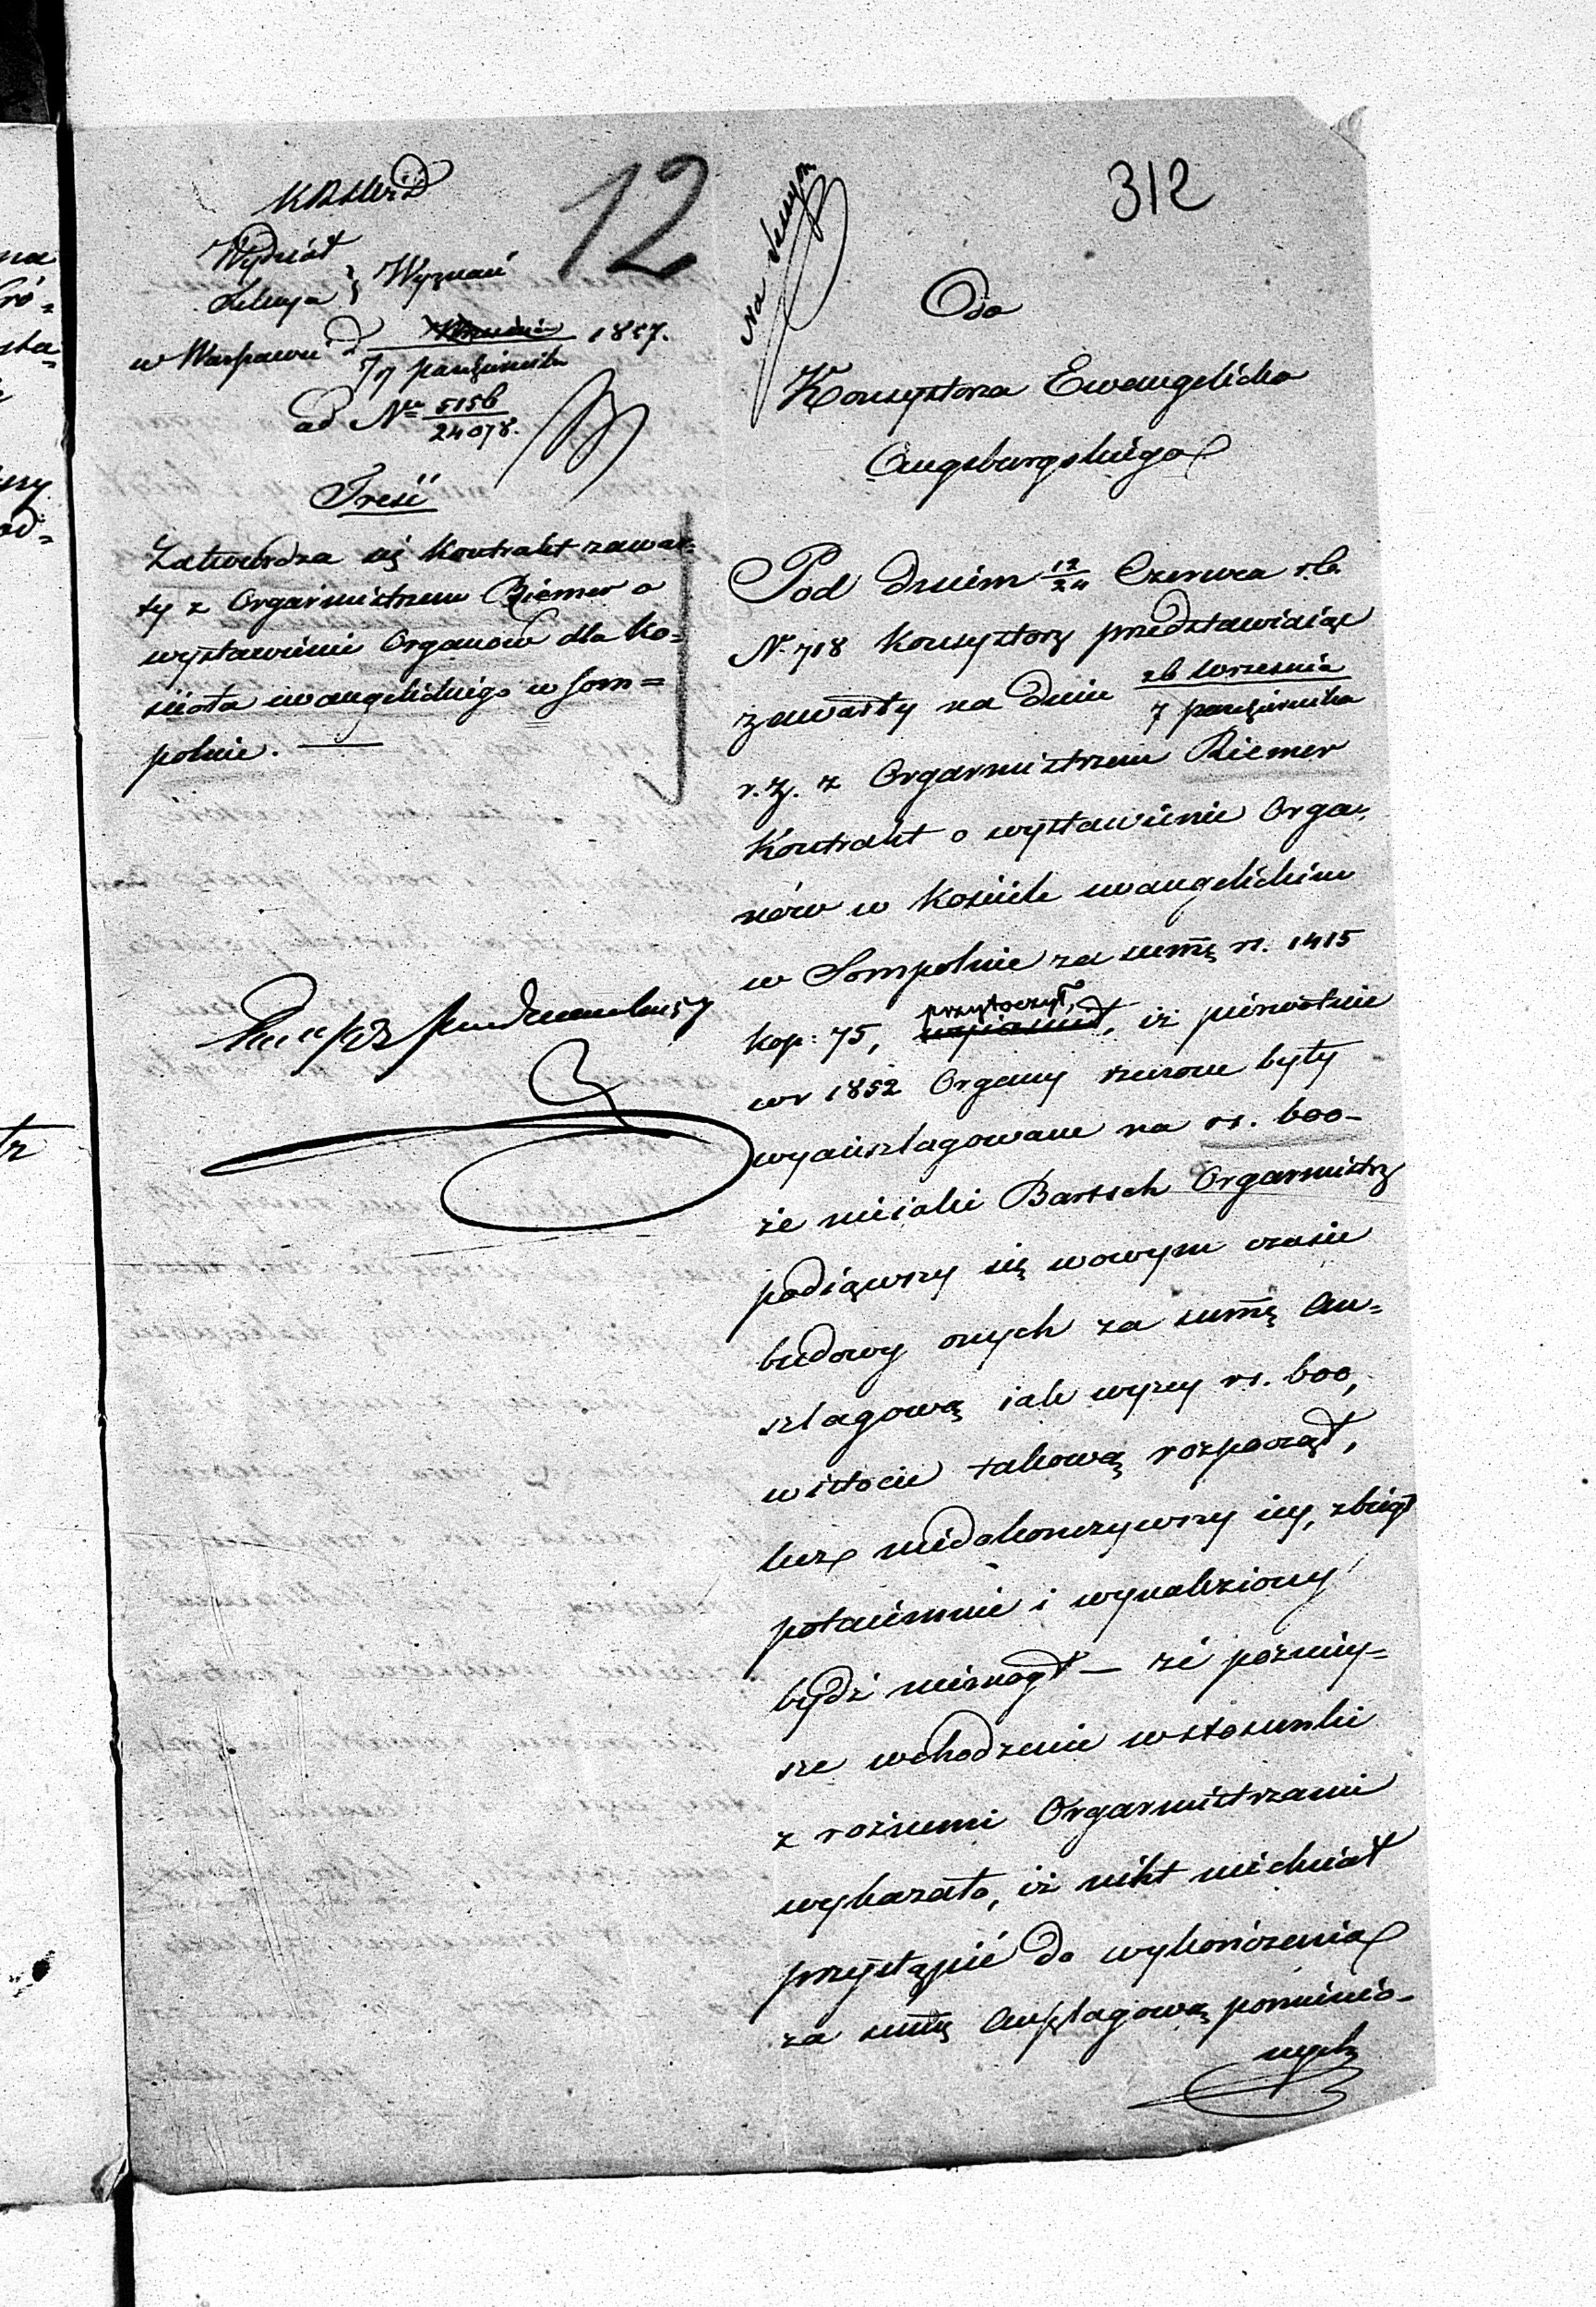 12
312
Wydział
Sekcya } Wyznań
w Warszawie d. Września 1857.
7/19 października
ad Nr 5156
24078.
Treść
Zatwierdza się kontrakt zawar=
ty z Organmistrzem Riemer o
wystawienie Organów dla Ko=
ścioła ewangelickiego w Som=
polnie. —
Do
Konsystorza Ewangelicko
Augsburgskiego
Pod dniem 12/24 Czerwca r.b.
N. 718 Konsystorz przedstawiając
zawarty na dniu 26 Września
7 października
r. z. z Organmistrzem Riemer
Kontrakt o wystawienie Orga-
nów w kościele ewangelickim
w Sompolnie za summę rs. 1415
kop: 75, przytoczył, iż pierwotnie
w r 1852 Organy rzeczone były
wyanszlagowane na rs. 600-
że niejaki Bartsch Organmistrz
podiąwszy się wowym czasie
budowy onych za summę An=
szlagową iak wyżey rs. 600,
wistocie takową rozpoczął,
lecz niedokonczywszy iey, zbiegł
potaiemnie i wynaleziony
bydź niemogł — że poźniey=
sze wchodzenie wstosunki
z rożnemi Organmistrzami
wykazało, iż nikt niechciał
przystąpić do wykończenia
za summę Anszlagową pomienio-
nych